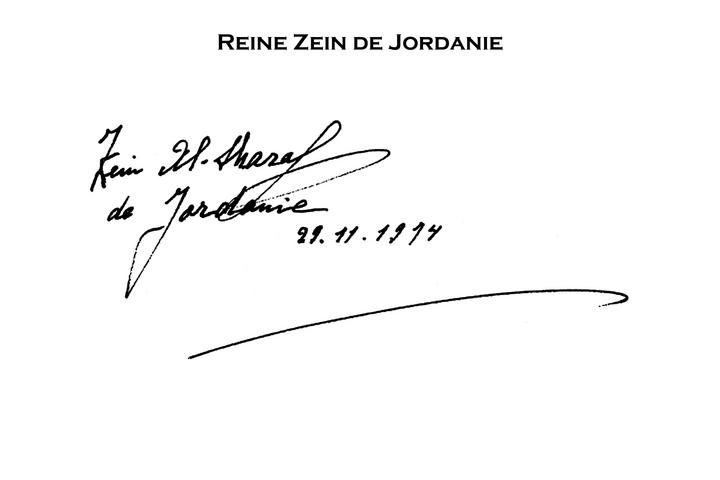 REINE ZEIN DE JORDANIE
Zein Al-Sharaf
de Jordanie
29.11.1974